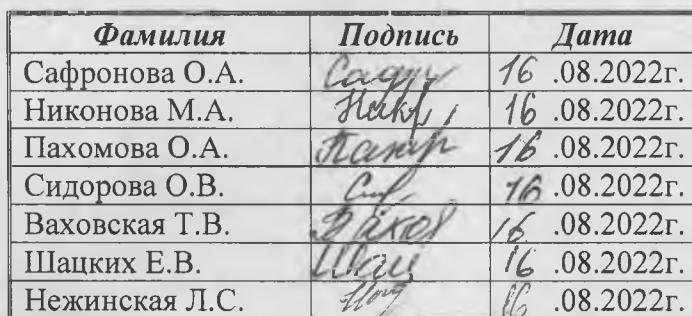 Фамилия Подпись Дата
Сафронова О.А. 16 .08.2022г.
Никонова М.А. 16 .08.2022г.
Пахомова О.А. 16 .08.2022г.
Сидорова О.В. 16 .08.2022г.
Ваховская Т.В. Вахов 16 .08.2022г.
Шацких Е.В. Шац 16 .08.2022г.
Нежинская Л.С. 16 .08.2022г.